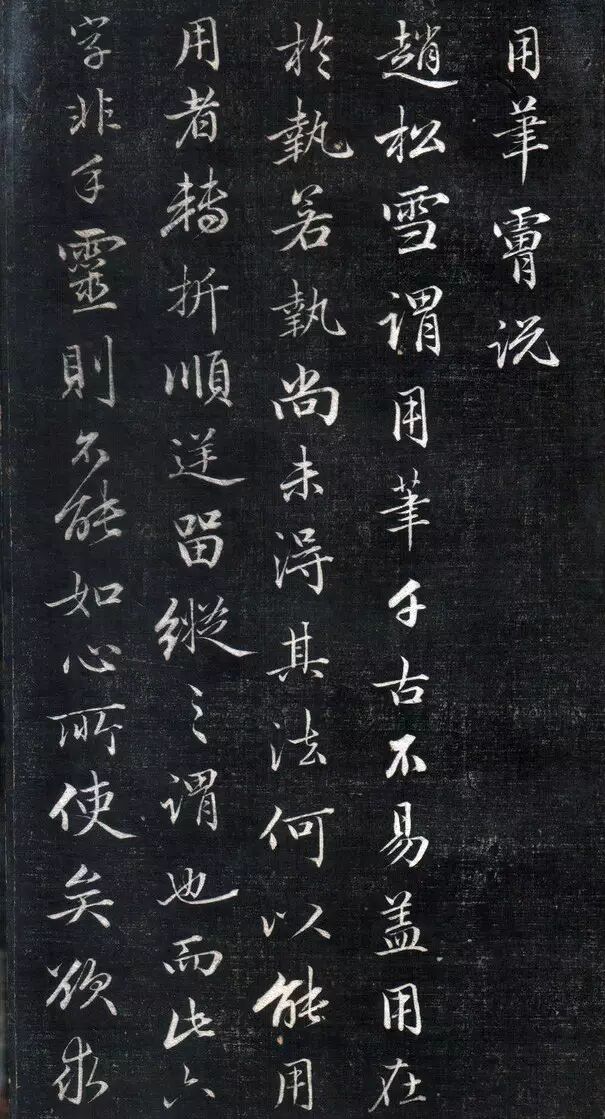 用筆說
趙松雪謂用筆千古不易盖用在
於執若執尚未得其法何以能用
用者轉折順逆留縱之謂也而此六
字非手靈則不能如心所使矣欲求